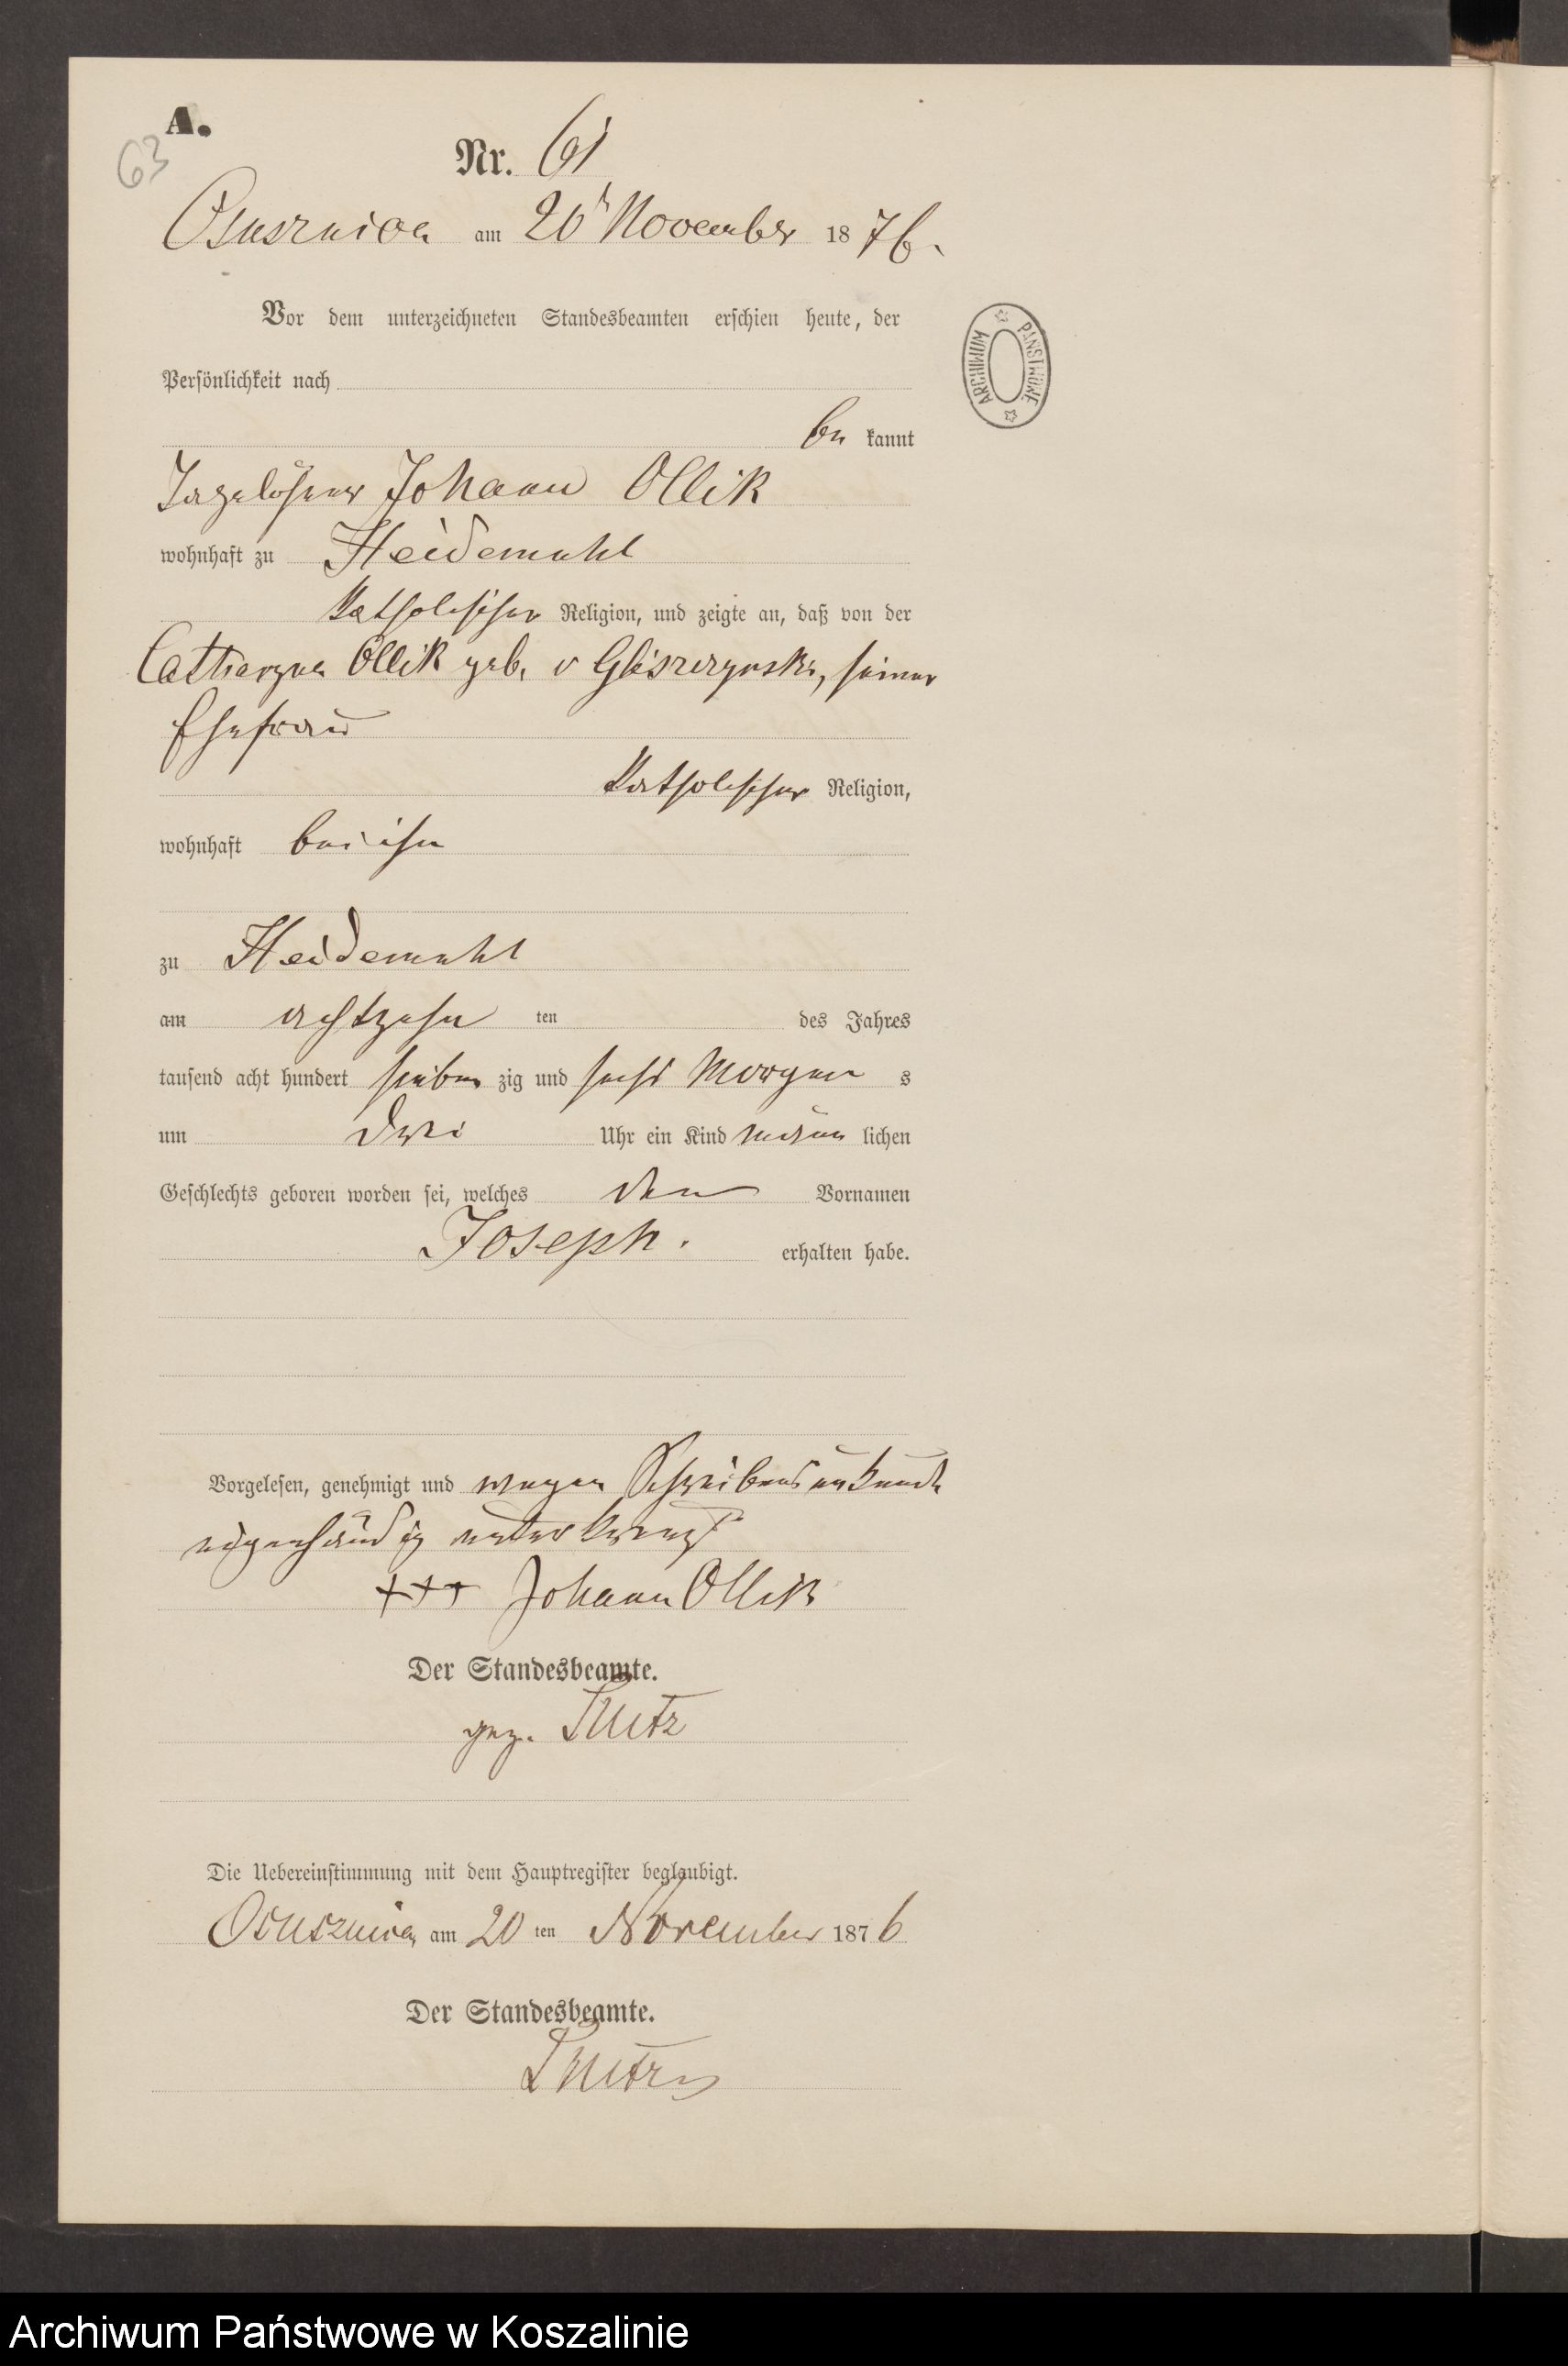 A.
63
Nr. 61
Osusznica am 20t November 1876.
Vor dem unterzeichneten Standesbeamten erschien heute, der
Persönlichkeit nach
be kannt
Tagelöhner Johann Ollik
wohnhaft zu Heidemühl
katholischer Religion, und zeigte an, daß von der
Ollik geb. v Gliszczynski, seiner
Ehefrau
katholischer Religion,
wohnhaft bei ihm
zu Heidemühl
am achtzehn ten des Jahres
tausend acht hundert sieben zig und sechs Morgen s
um drei Uhr ein Kind männ lichen
Geschlechts geboren worden sei, welches den Vornamen
Joseph. erhalten habe.
Vorgelesen, genehmigt und wegen Schreibensunkunde
eigenhändig unterkreuzt
+++ Johann Ollik
Der Standesbeamte.
gez.
Die Uebereinstimmung mit dem Hauptregister beglaubigt.
Osusznica am 20 ten November 1876
Der Standesbeamte.
ARCHIWUM PAŃSTWOWE
Archiwum Państwowe w Koszalinie